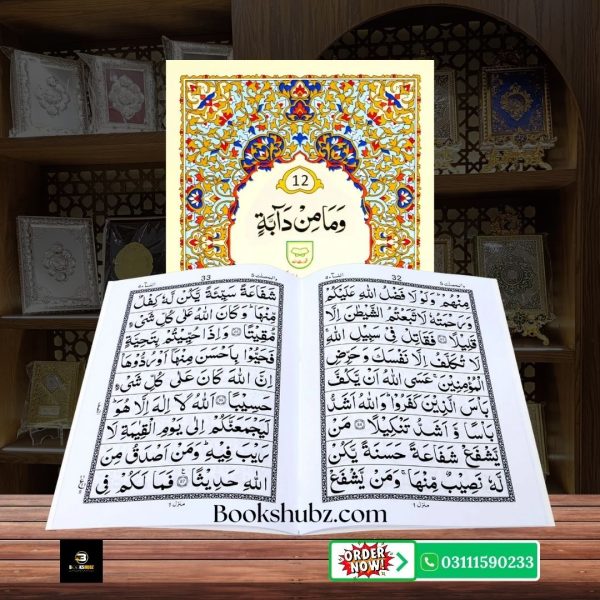 12
وَمَا مِنْ دَآبَّةٍ
32
مِنْهُمْ وَلَوْلَا فَضْلُ اللّٰهِ عَلَيْكُمْ
وَرَحْمَتُهٗ لَاتَّبَعْتُمُ الشَّيْطٰنَ اِلَّا
قَلِيْلًا ۝ فَقَاتِلْ فِيْ سَبِيْلِ اللّٰهِ
لَا تُكَلَّفُ اِلَّا نَفْسَكَ وَحَرِّضِ
الْمُؤْمِنِيْنَ عَسَى اللّٰهُ اَنْ يَّكُفَّ
بَاْسَ الَّذِيْنَ كَفَرُوْا وَاللّٰهُ اَشَدُّ
بَاْسًا وَّاَشَدُّ تَنْكِيْلًا ۝ مَنْ
يَّشْفَعْ شَفَاعَةً حَسَنَةً يَّكُنْ
لَّهٗ نَصِيْبٌ مِّنْهَا وَمَنْ يَّشْفَعْ
منزل ١
33
شَفَاعَةً سَيِّئَةً يَّكُنْ لَّهٗ كِفْلٌ
مِّنْهَا وَكَانَ اللّٰهُ عَلٰى كُلِّ شَيْءٍ
مُّقِيْتًا ۝ وَاِذَا حُيِّيْتُمْ بِتَحِيَّةٍ
فَحَيُّوْا بِاَحْسَنَ مِنْهَا اَوْ رُدُّوْهَا
اِنَّ اللّٰهَ كَانَ عَلٰى كُلِّ شَيْءٍ
حَسِيْبًا ۝ اَللّٰهُ لَا اِلٰهَ اِلَّا هُوَ
لَيَجْمَعَنَّكُمْ اِلٰى يَوْمِ الْقِيٰمَةِ لَا
رَيْبَ فِيْهِ وَمَنْ اَصْدَقُ مِنَ
اللّٰهِ حَدِيْثًا ۝ فَمَا لَكُمْ فِي
منزل ١
Bookshubz.com
ORDER NOW!
03111590233